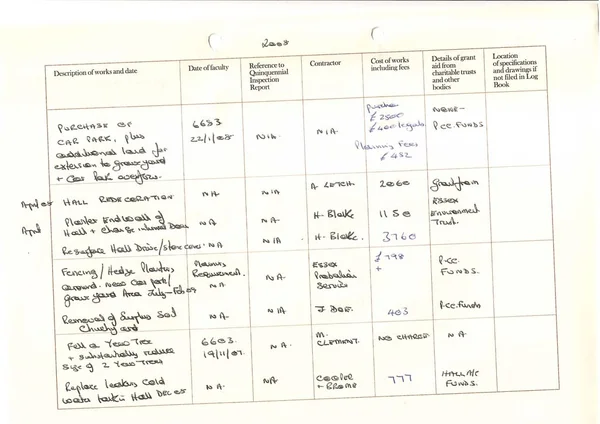 2008
Description of works and date
Date of faculty
Reference to
Quinquennial
Inspection
Report
Contractor
Cost of works
including fees
Details of grant
aid from
charitable trusts
and other
bodies
Location
of specifications
and drawings if
not filed in Log
Book
PURCHASE OF
CAR PARK, plus
additional land for
extension to graveyard
+ Car Park overflow.
6683
22/1/08
N/A.
N/A
Purchase
£2500
£400 legals
Planning Fees
£452
NONE-
PCC.FUNDS
April 08 HALL REDECORATION
NA
N/A
2060
Grant from
Essex
Environment
Trust.
April
Plaster End wall of
Hall + Change internal Door
NA
N/A
H. Blake
1150
Resurface Hall Drive/
NA
N/A
H. Blake.
3760
Fencing/Hedge Planting
around New Car park/
graveyard Area July-Feb 09
Planning
Requirement.
NA
N.A.
ESSEX
Probation
Service
£798
+
P.C.C.
FUNDS.
Removal of Surplus Soil
Churchyard
NA.
N/A
J DOE.
403
P.C.C. Funds
Fell a Yew Tree
+ substantially reduce
size of 2 Yew Trees
6603.
19/11/07.
N A.
M.
CLEMENT.
NO CHARGE
N A
Replace leaking Cold
water tank in Hall DEC 08
N A.
NA.
COOPER
777
HALL A/C
FUNDS.